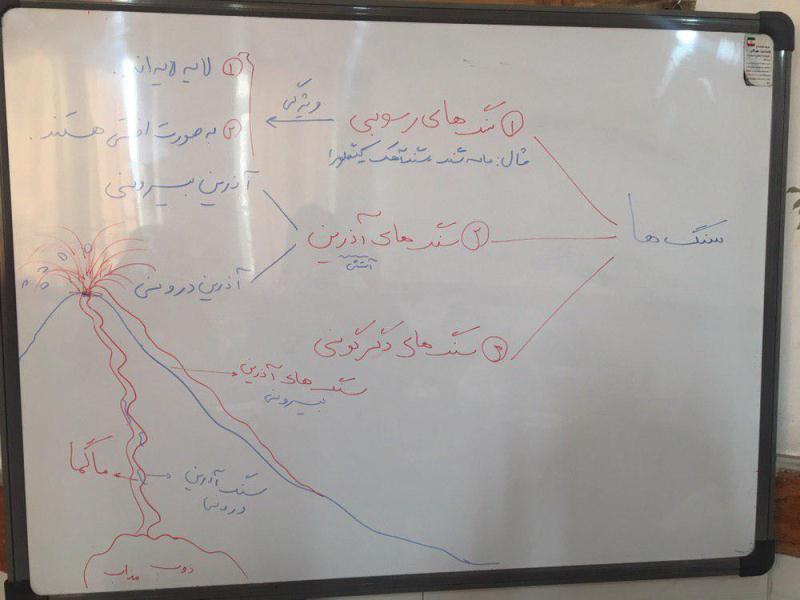 سنگ ها
① سنگ های رسوبی
مثال: ماسه سنگ، سنگ آهک
ویژگی
① لایه لایه اند.
② به صورت افقی هستند.
② سنگ های آذرین
آتش
آذرین بیرونی
آذرین درونی
③ سنگ های دگرگونی
سنگ های آذرین
بیرونی
ماگما
سنگ آذرین
درونی
ذوب
مذاب